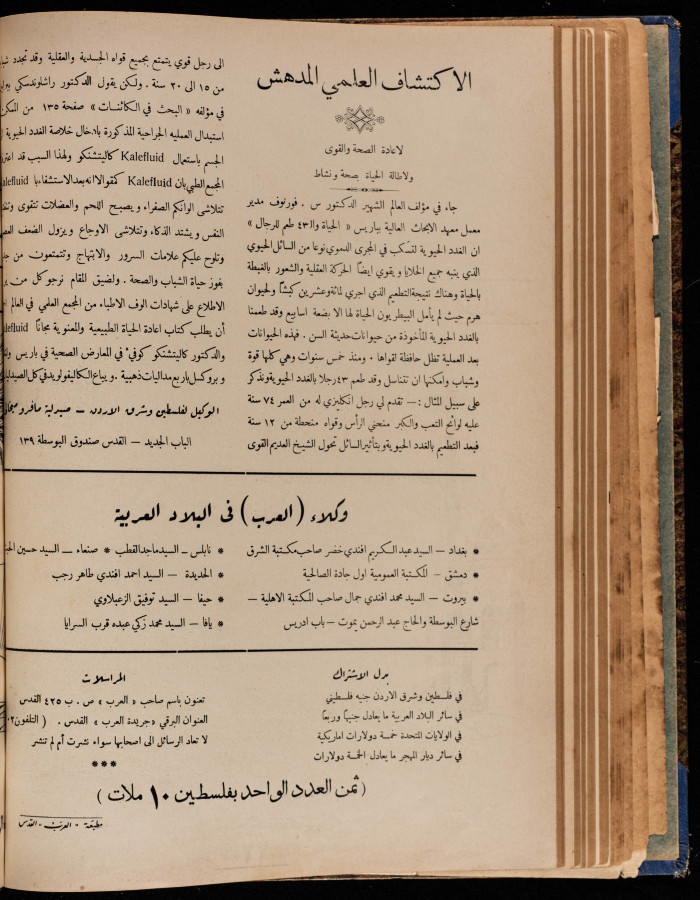 الاكتشاف العلمي المدهش
لاعادة الصحة والقوى
ولاطالة الحياة بصحة ونشاط
جاء في مؤلف العالم الشهير الدكتور س . فورنوف مدير
معمل معهد الابحاث العالية بباريس « الحياة والـ٤٣ طعم للرجال »
ان الغدد الحيوية لتسكب في المجرى الدموي نوعا من السائل الحيوي
الذي ينبه جميع الخلايا ويقوي ايضاً الحركة العقلية والشعور بالغبطة
بالحياة وهناك نتيجة التطعيم الذي اجري لمائة وعشرين كبشاً ولحيوان
هرم حيث لم يأمل البيطريون الحياة لها الا بضعة اسابيع وقد طعمنا
بالغدد الحيوية المأخوذة من حيوانات حديثة السن . فهذه الحيوانات
بعد العملية تظل حافظة لقواها . ومنذ خمس سنوات وهي كلها قوة
وشباب وامكنها ان تتناسل وقد طعم ٤٣ رجلا بالغدد الحيوية ونذكر
على سبيل المثال :— تقدم لي رجل انكليزي له من العمر ٧٤ سنة
عليه لوائح التعب والكبر منحني الرأس وقواه منحطة من ١٢ سنة
فبعد التطعيم بالغدد الحيوية وبتأثير السائل تحول الشيخ العديم القوى
الى رجل قوي يتمتع بجميع قواه الجسدية والعقلية وقد تجدد
من ١٥ الى ٢٠ سنة . ولكن يقول الدكتور راشلوندسكي
في مؤلفه « البحث في الكائنات » صفحة ١٣٥ من
استبدال العملية الجراحية المذكورة بادخال خلاصة الغدد الحيوية
الجسم باستعمال Kalefluid كاليتشنكو ولهذا السبب قد
المجمع الطبي بان Kalefluid كمقو الا انه بعد الاستشفاء با
تتلاشى الوانكم الصفراء ويصبح اللحم والعضلات تتقوى
النفس ويشتد الذكاء وتتلاشى الاوجاع ويزول الضعف
وتلوح عليكم علامات السرور والابتهاج وتتمتعون من
يفوز حياة الشباب والصحة . ولضيق المقام نرجو كل من
الاطلاع على شهادات الوف الاطباء من المجمع العلمي في العالم
أن يطلب كتاب اعادة الحياة الطبيعية والمعنوية مجاناً
والدكتور كاليتشنكو كوفي في المعارض الصحية في باريس
وبروكسل باربع مداليات ذهبية . ويباع الكاليفولويد في كل
الوكيل لفلسطين وشرق الاردن — صيدلية
الباب الجديد — القدس صندوق البوسطة ١٣٩
وكلاء (العرب) في البلاد العربية
* بغداد — السيد عبد الكريم افندي خضر صاحب مكتبة الشرق
* دمشق — المكتبة العمومية اول جادة الصالحية
* بيروت — السيد محمد افندي جمال صاحب المكتبة الاهلية —
شارع البوسطة والحاج عبد الرحمن يموت — باب ادريس
* نابلس — السيد ماجد القطب * صنعاء — السيد حسين
* الحديدة — السيد احمد افندي طاهر رجب
* حيفا — السيد توفيق الزعبلاوي
* يافا — السيد محمد زكي عبده قرب السرايا
بدل الاشتراك
في فلسطين وشرق الاردن جنيه فلسطيني
في سائر البلاد العربية ما يعادل جنيهاً وربعاً
في الولايات المتحدة خمسة دولارات اماريكية
في سائر ديار المهجر ما يعادل الخمسة دولارات
المراسلات
تعنون باسم صاحب « العرب » ص . ب ٤٢٥ القدس
العنوان البرقي « جريدة العرب » القدس .
لا تعاد الرسائل الى اصحابها سواء نشرت أم لم تنشر
***
( ثمن العدد الواحد بفلسطين ١٠ ملات )
مطبعة - العرب - القدس